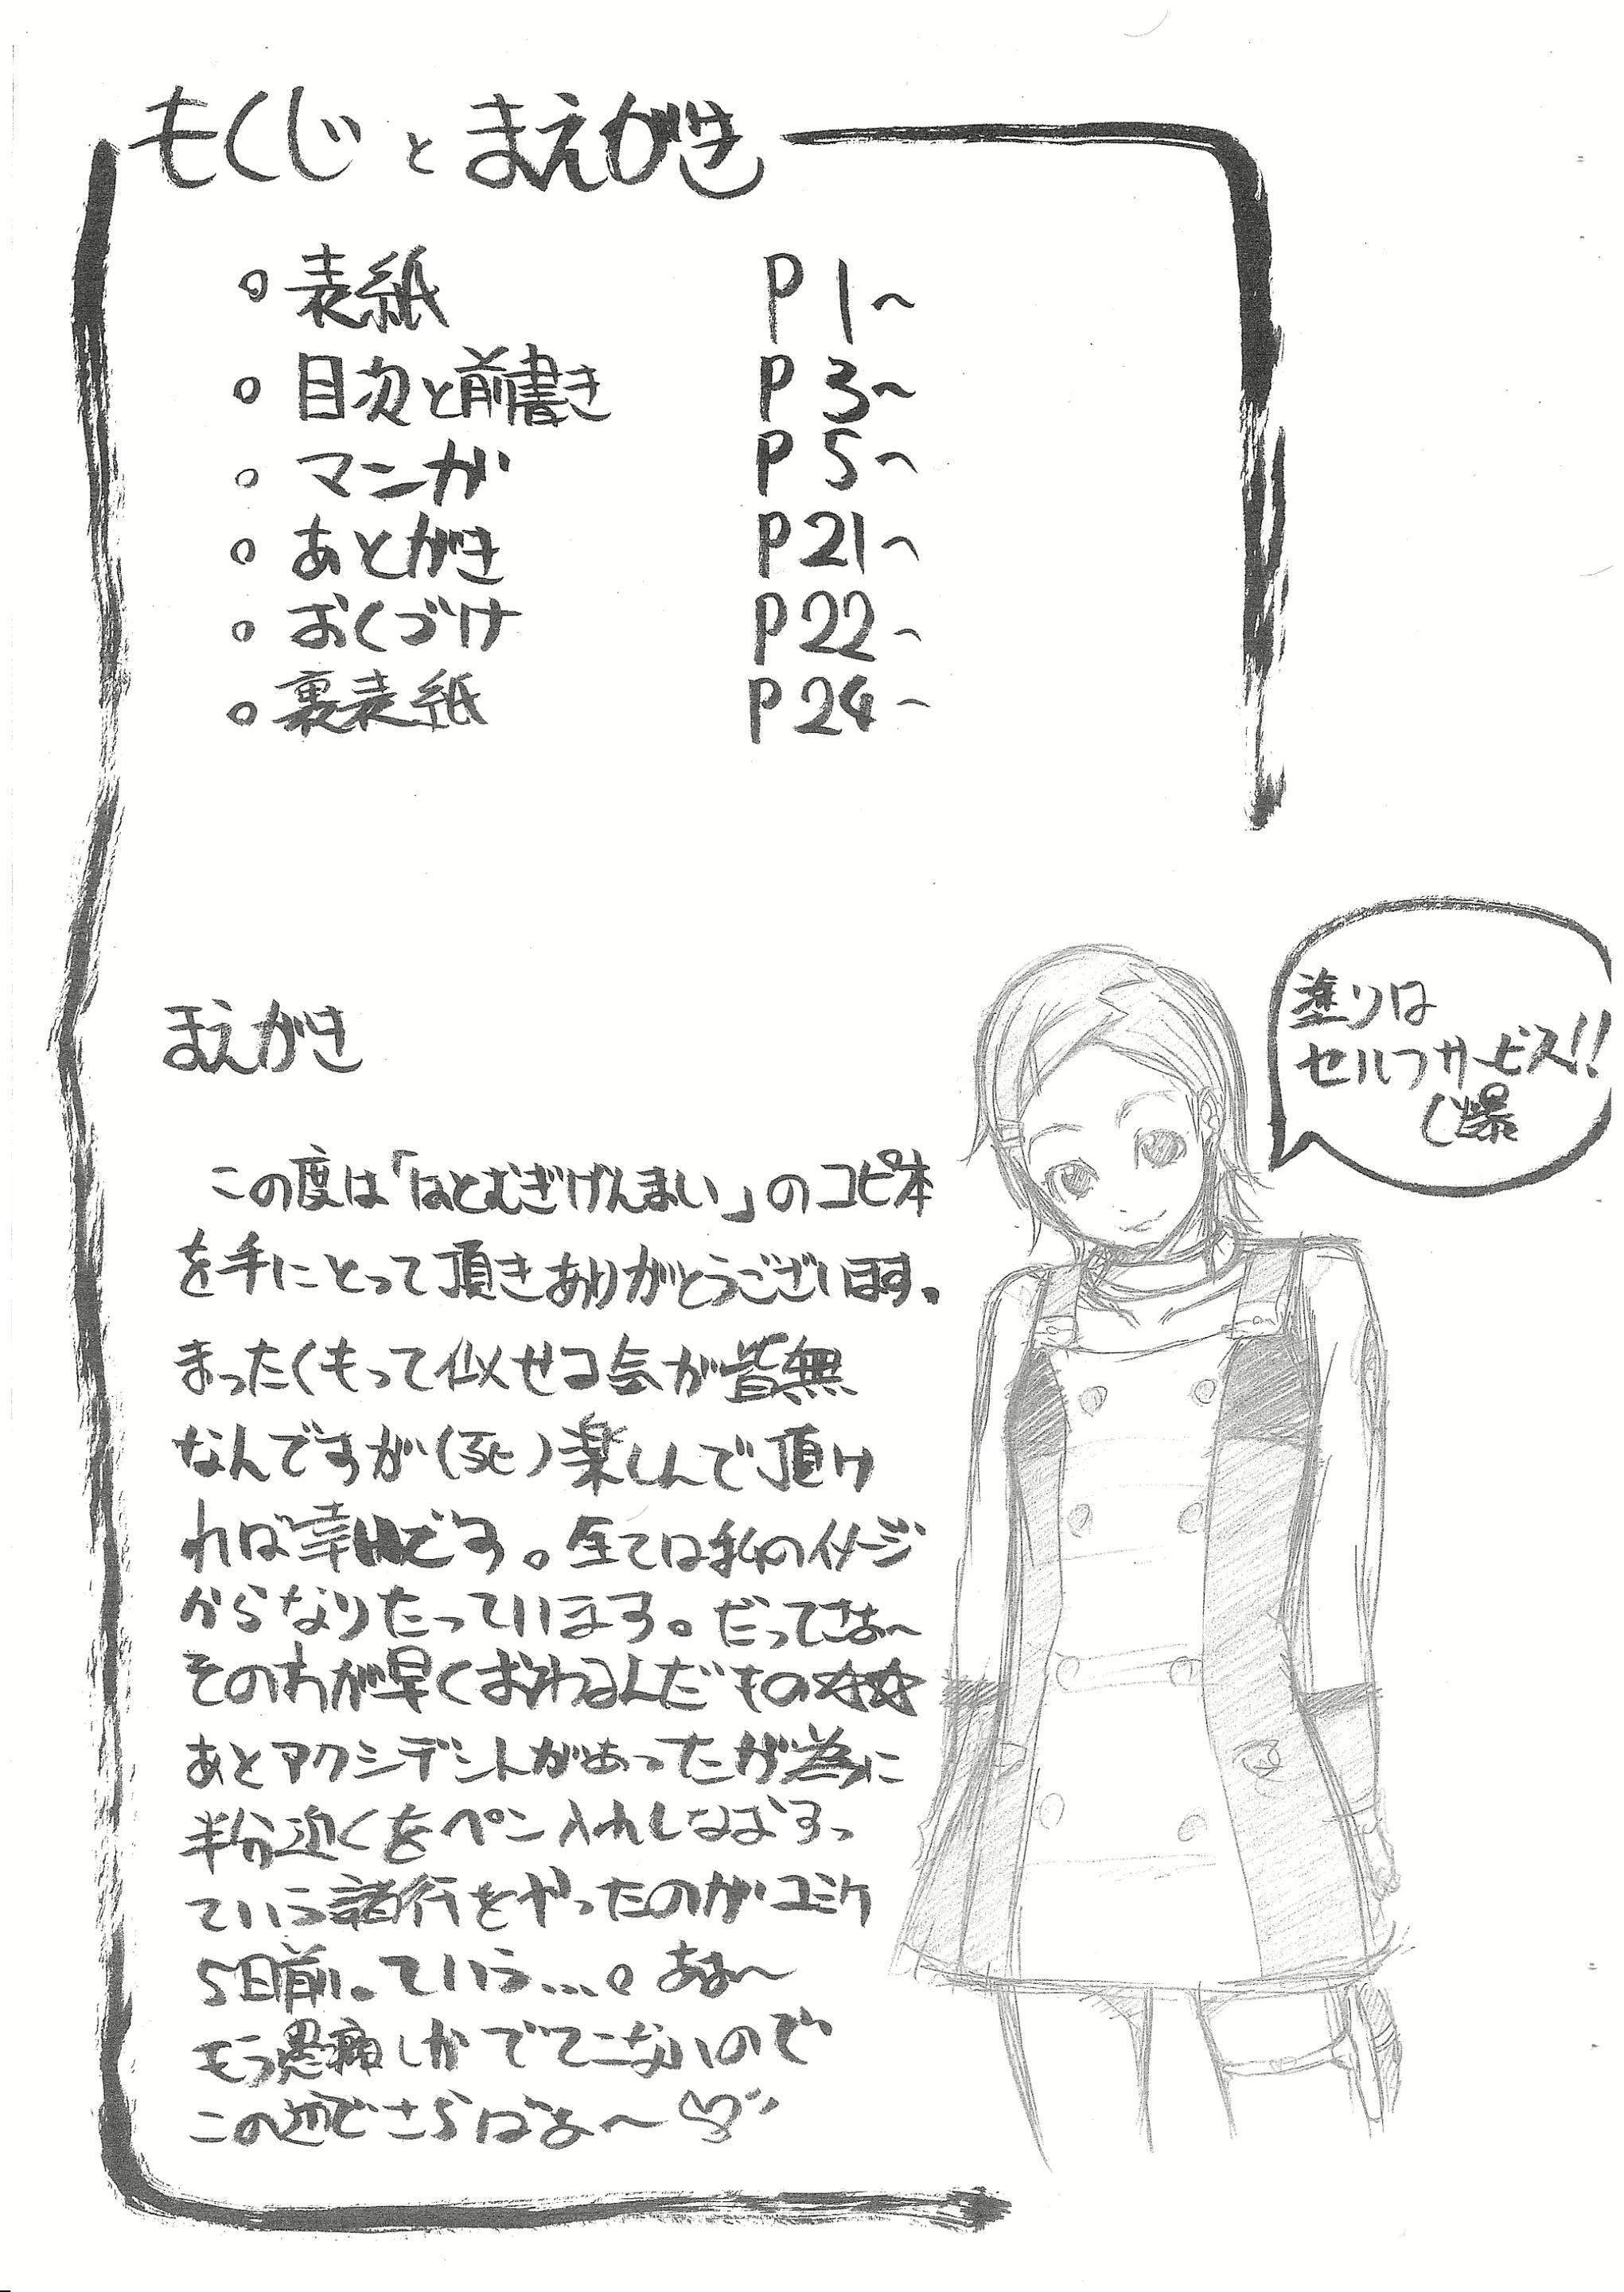 もくじ と まえがき
。表紙 P1~
。目次と前書き P3~
。マンガ P5~
。あとがき P21~
。おくづけ P22~
。裏表紙 P24~
まえがき
この度は「はとむぎげんまい」のコピ本
を手にとって頂きありがとうございます。
まったくもって似せコ会が皆無
なんですが(死)楽しんで頂け
れば幸いです。全ては私のイメージ
からなりたっています。だってさぁ~
そのわが早くおわるんだもの☆☆
あとアクシデントがあったが為に
半分近くをペン入れしなおすっ
ていう諸行をやったのがコミケ
5日前。ていう...。ああ~
もう愚痴しかでてこないので
この辺でさらばぁ~
塗りは
セルフサービス!!
(爆